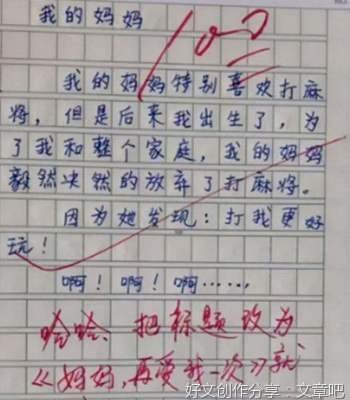 我的妈妈
我的妈妈特别喜欢打麻
将，但是后来我出生了，为
了我和整个家庭，我的妈妈
毅然决然的放弃了打麻将。
因为她发现：打我更好
玩！
啊！啊！啊……
哈哈、把标题改为
《妈妈，再爱我一次》就
好文创作分享：文章吧